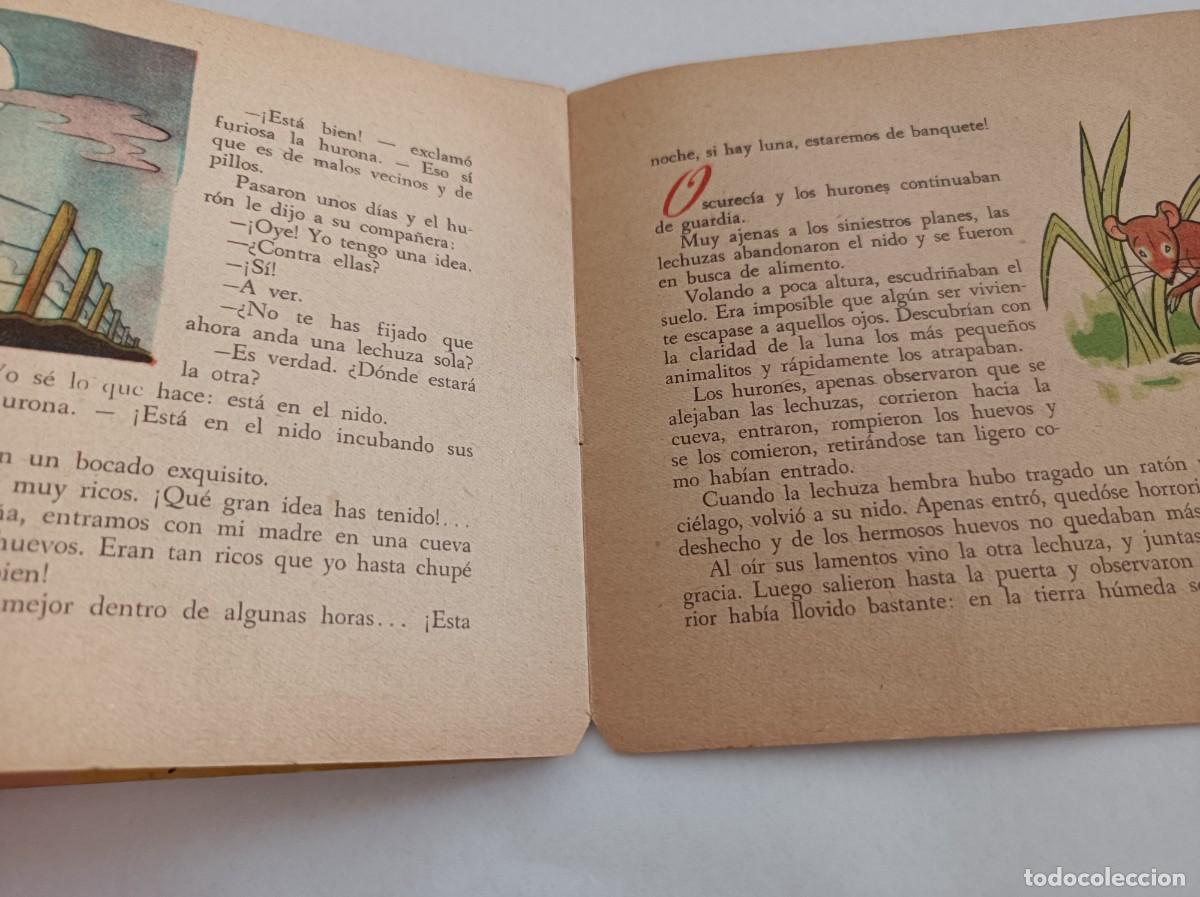 —¡Está bien! — exclamó
furiosa la hurona. — Eso sí
que es de malos vecinos y de
pillos.
Pasaron unos días y el hu-
rón le dijo a su compañera:
—¡Oye! Yo tengo una idea.
—¿Contra ellas?
—¡Sí!
—A ver.
—¿No te has fijado que
ahora anda una lechuza sola?
—Es verdad. ¿Dónde estará
la otra?
Yo sé lo que hace: está en el nido.
urona. — ¡Está en el nido incubando sus
n un bocado exquisito.
muy ricos. ¡Qué gran idea has tenido!...
entramos con mi madre en una cueva
huevos. Eran tan ricos que yo hasta chupé
ien!
mejor dentro de algunas horas... ¡Esta
noche, si hay luna, estaremos de banquete!
Oscurecía y los hurones continuaban
de guardia.
Muy ajenas a los siniestros planes, las
lechuzas abandonaron el nido y se fueron
en busca de alimento.
Volando a poca altura, escudriñaban el
suelo. Era imposible que algún ser vivien-
te escapase a aquellos ojos. Descubrían con
la claridad de la luna los más pequeños
animalitos y rápidamente los atrapaban.
Los hurones, apenas observaron que se
alejaban las lechuzas, corrieron hacia la
cueva, entraron, rompieron los huevos y
se los comieron, retirándose tan ligero co-
mo habían entrado.
Cuando la lechuza hembra hubo tragado un ratón
ciélago, volvió a su nido. Apenas entró, quedóse horrori
deshecho y de los hermosos huevos no quedaban más
Al oír sus lamentos vino la otra lechuza, y juntas
gracia. Luego salieron hasta la puerta y observaron
rior había llovido bastante: en la tierra húmeda se
todocoleccion